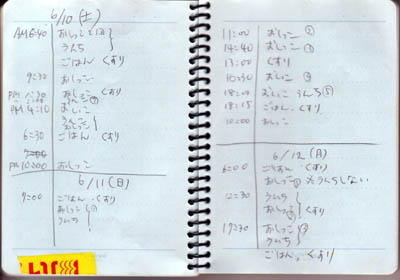 6/10(土)
AM6:40 おしっこ
うんち
ごはん くすり
9:30 おしっこ
おしっこ くすり
PM 4:10 おしっこ
うんち
おしっこ
6:30 ごはん くすり
PM10:00 おしっこ
6/11(日)
9:00 ごはん くすり
おしっこ
うんち
11:00 おしっこ②
14:40 おしっこ③
13:00 くすり
10:30 おしっこ④
18:00 おしっこ うんち⑤
18:15 ごはん くすり
10:00 おしっこ
6/12(月)
6:00 ごはん くすり
おしっこ① うんちしない
12:30 うんち
おしっこ② くすり
19:30 おしっこ③
うんち
ごはん、くすり